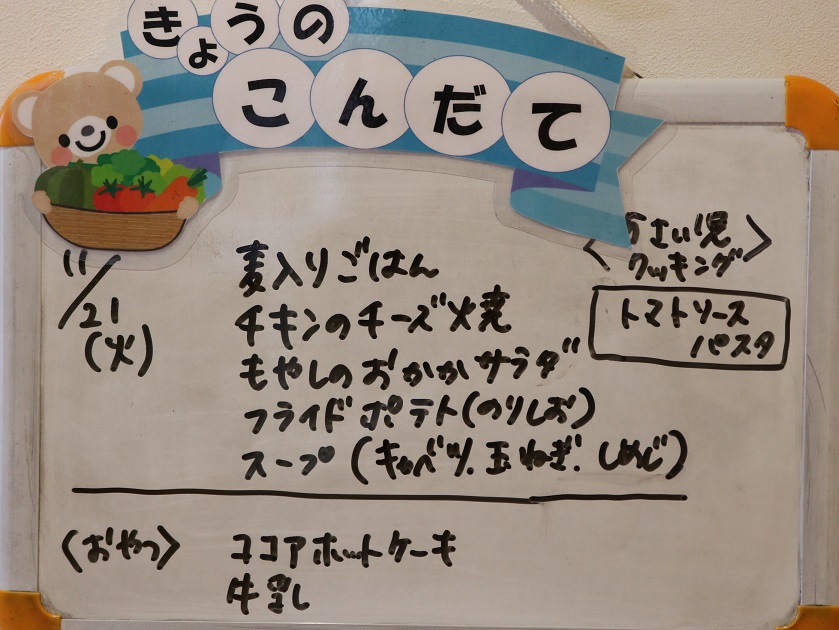 きょうの
こんだて
11/21
(火)
麦入りごはん
チキンのチーズ焼
もやしのおかかサラダ
フライドポテト(のりしお)
スープ(キャベツ.玉ねぎ.しめじ)
<5さい児
クッキング>
トマトソース
パスタ
<おやつ>
ココアホットケーキ
牛乳